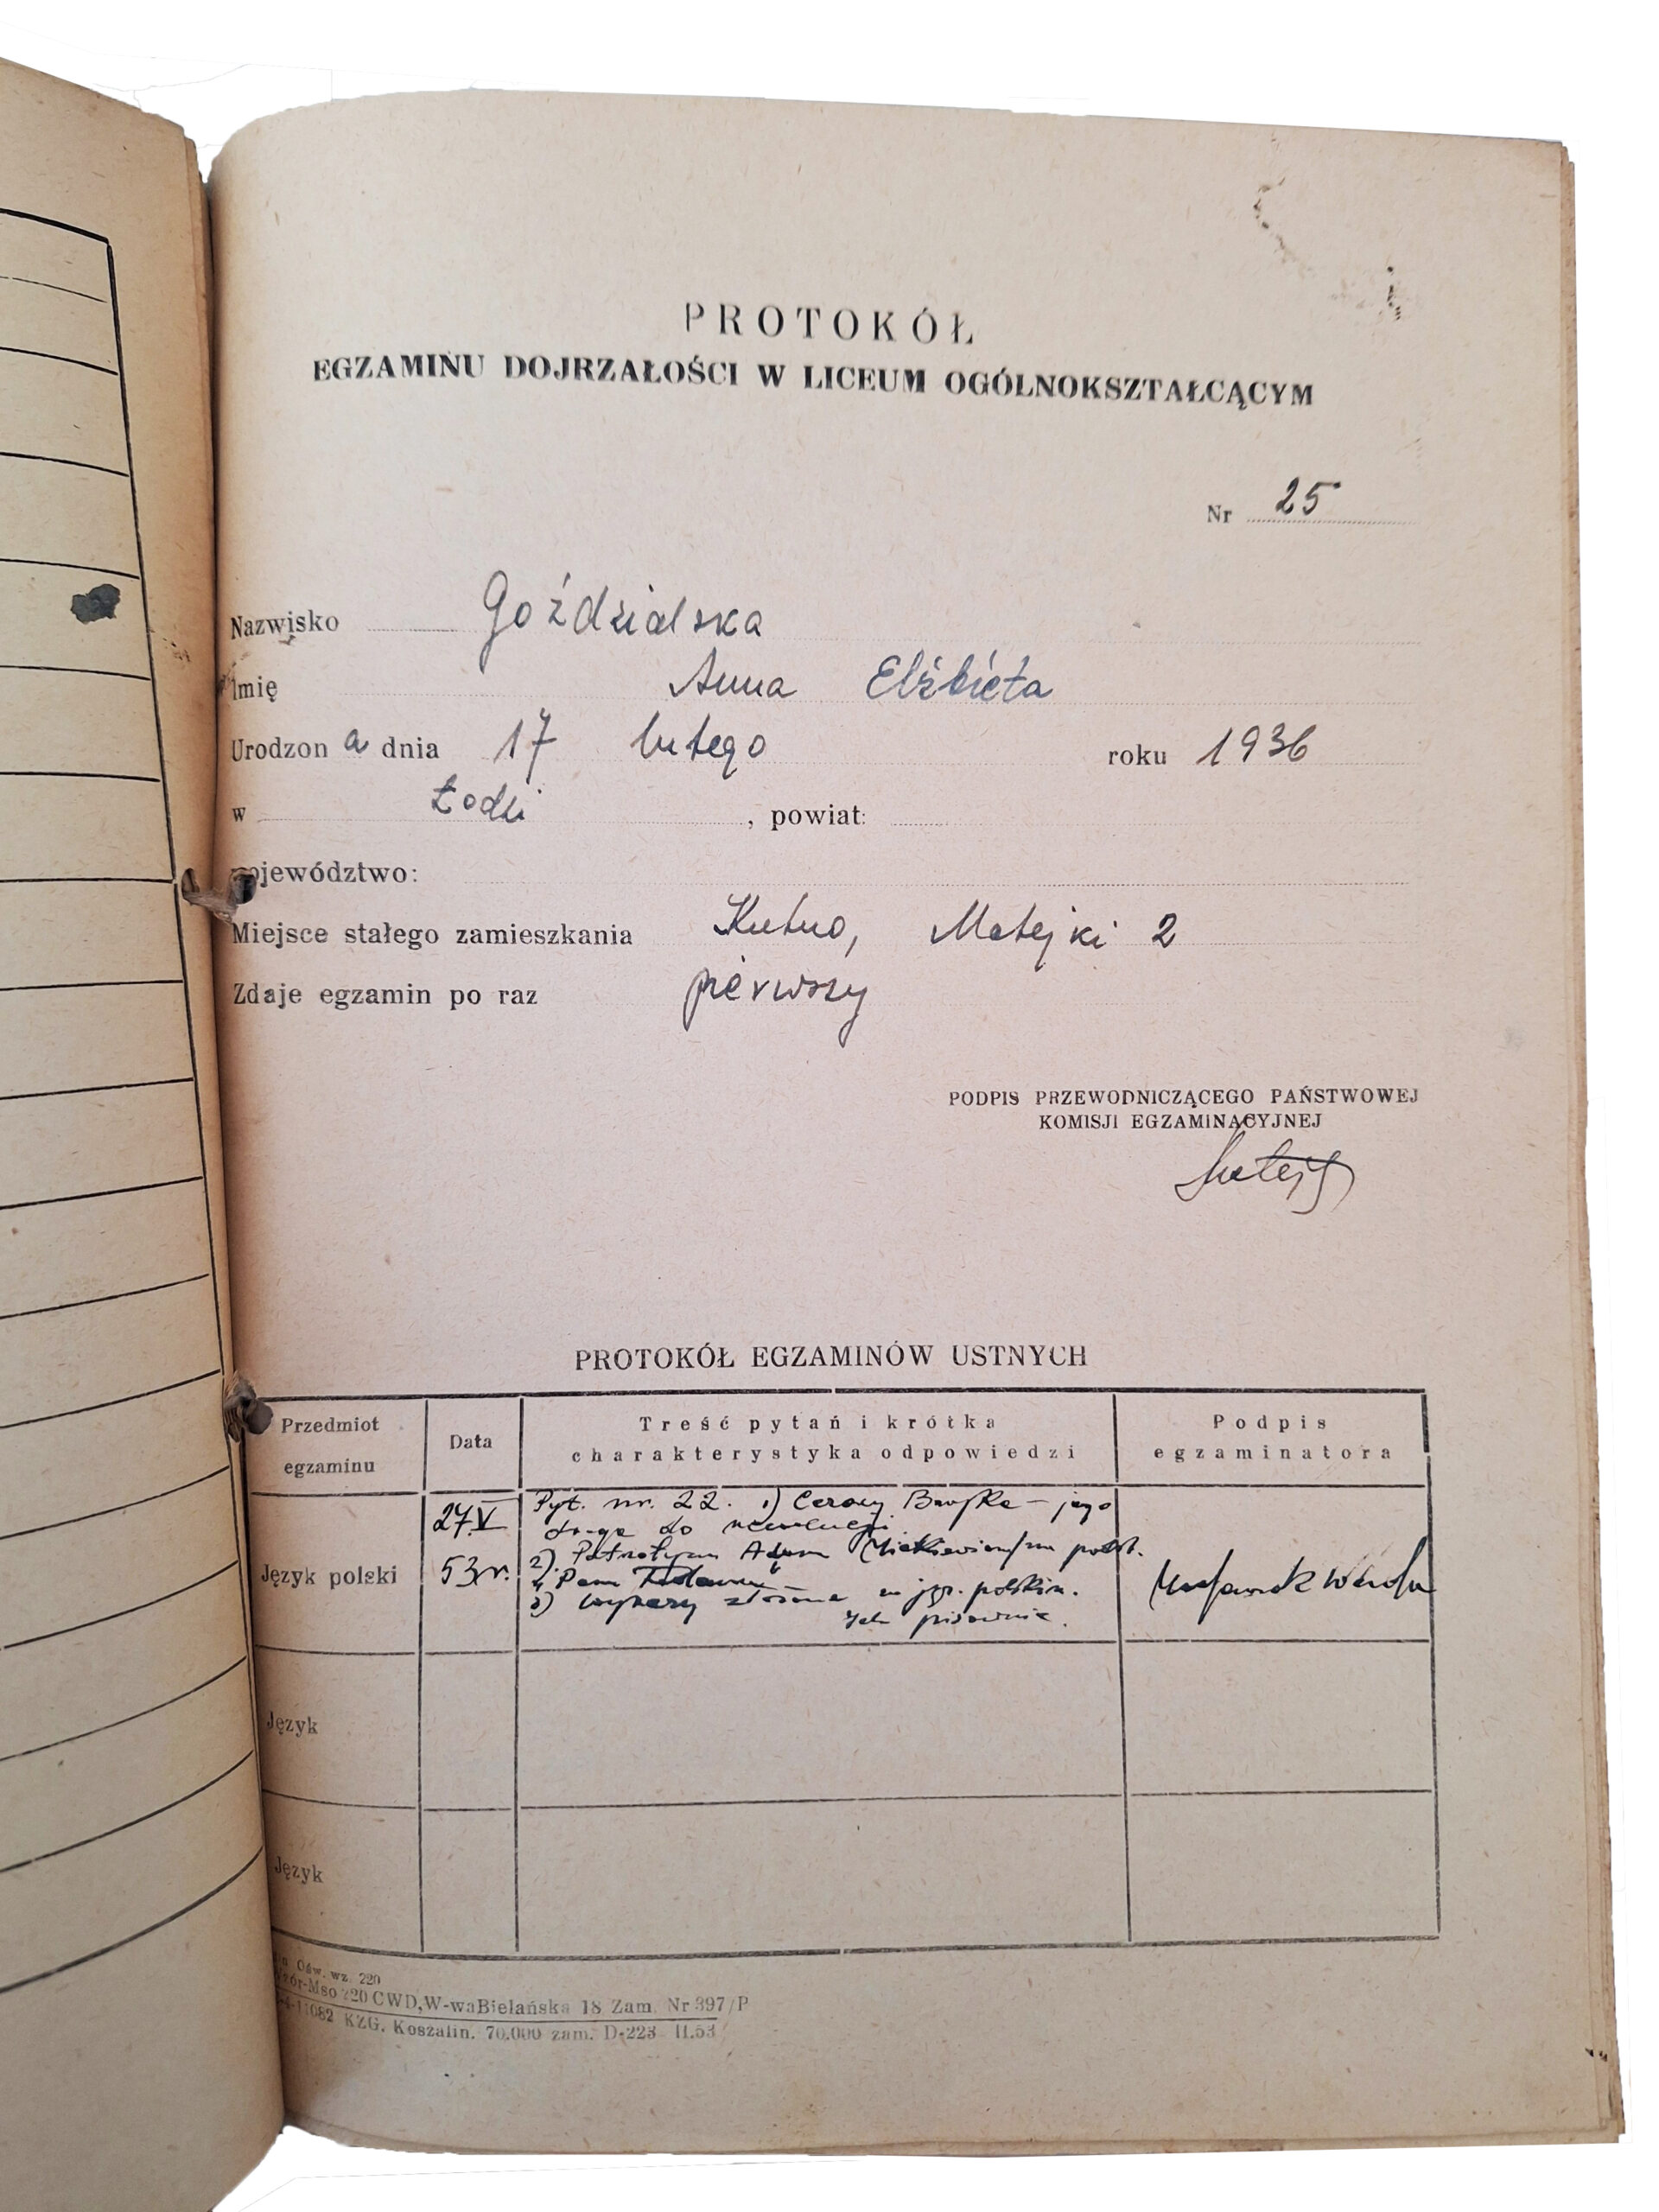 PROTOKÓŁ
EGZAMINU DOJRZAŁOŚCI W LICEUM OGÓLNOKSZTAŁCĄCYM
Nr 25
Nazwisko Goździalska
Imię Anna Elżbieta
Urodzona dnia 17 lutego roku 1936
w Łodzi , powiat:
województwo:
Miejsce stałego zamieszkania Kutno, Matejki 2
Zdaje egzamin po raz pierwszy
PODPIS PRZEWODNICZĄCEGO PAŃSTWOWEJ
KOMISJI EGZAMINACYJNEJ
PROTOKÓŁ EGZAMINÓW USTNYCH
Przedmiot
egzaminu
Data
Treść pytań i krótka
charakterystyka odpowiedzi
Podpis
egzaminatora
Język polski
27.V
53 r.
Pyt. nr. 22. 1) Cezary Baryka – jego
droga do rewolucji
2). Patriotyzm Adama Mickiewicza
w Panu Tadeuszu
3) wyrazy złożone w jęz. polskim.
Ich pisownia.
Język
Język
Ośw. wz. 220
Wzór-Mso 220 CWD, W-wa Bielańska 18 Zam. Nr 397/P
4-11082 KZG. Koszalin. 70.000 zam. D-223 II.53